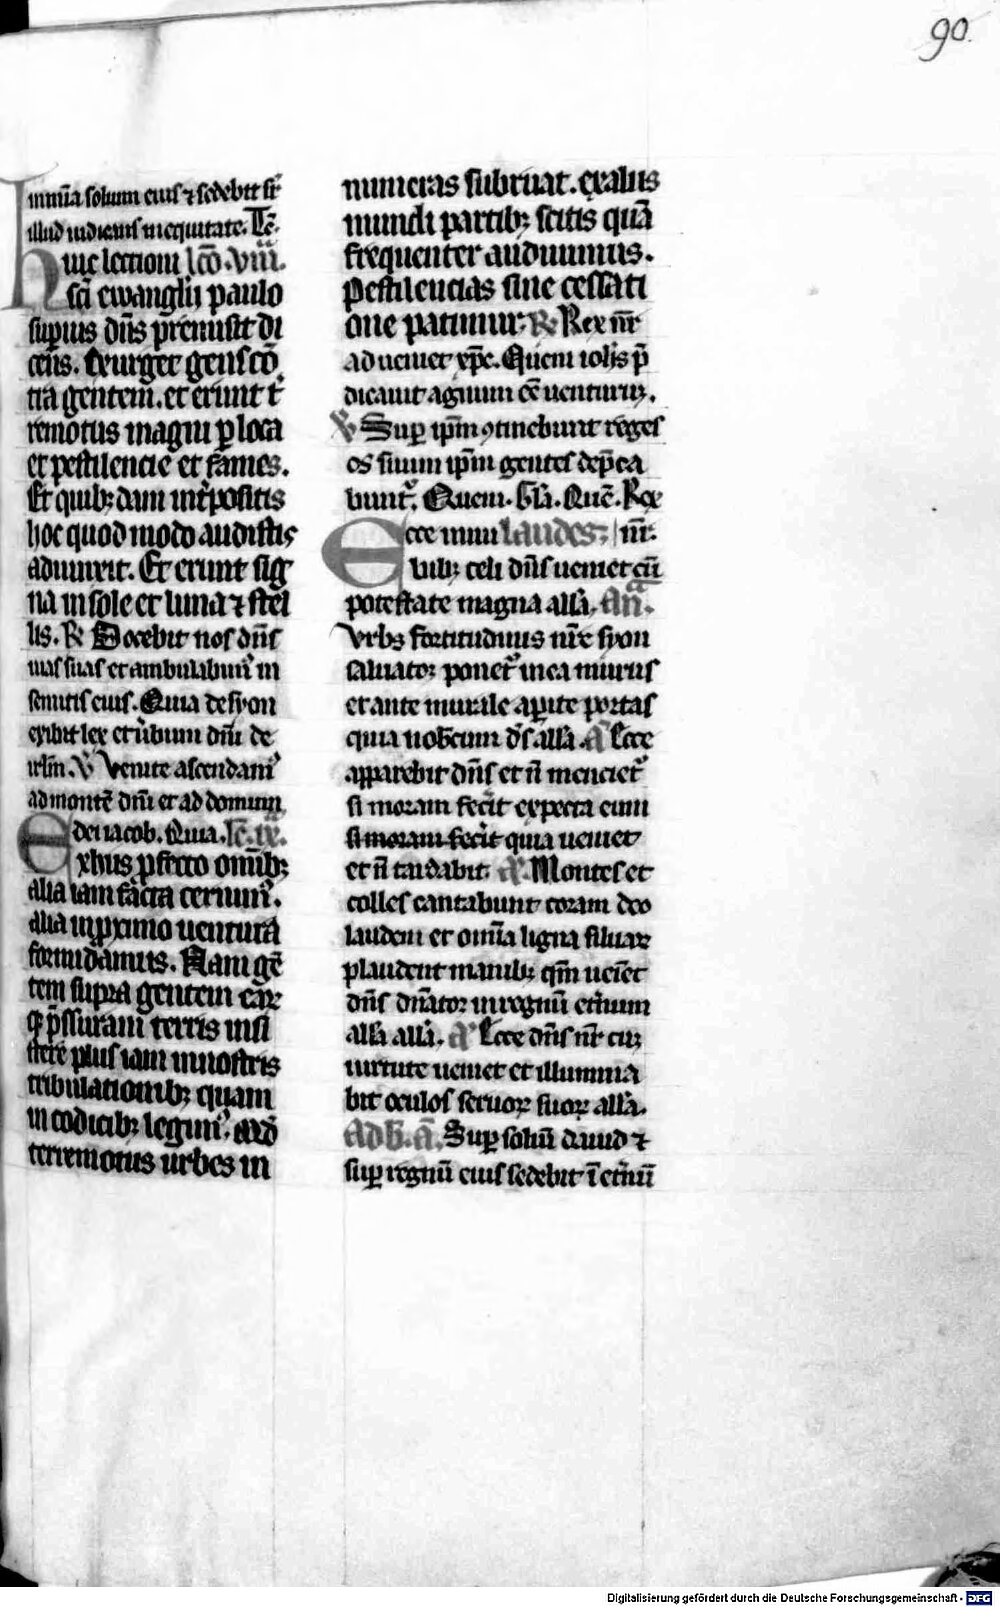 90
in mīa solium eius ⁊ sedebit sr̄
illud iudicans in equitate. Tē.
Huic lectioni lc̄o. viii.
sc̄i ewanglij paulo
suꝑius dn̄s p̄remisit di
cens. Exurget gens cō
tra gentem. et erunt t͛
remotus magni ꝑ loca
et pestilencie et fames.
Et quibꝫdam int͛positis
hoc quod modo audistis
adiunxit. Et erunt sig
na in sole et luna ⁊ stel
lis. ℟ Docebit nos dn̄s
uias suas et ambulabim᷒ in
semitis eius. Quia de syon
exibit lex et u͛bum dn̄i de
irl̄m. ℣ Venite ascendam᷒
ad montē dn̄i et ad domum
dei iacob. Quia. lc̄. ix.
Ex hiis ꝓfecto om̄ibꝫ
alia iam fac̄ta cernim᷒.
alia in ꝓximo uentura
formidamus. Nam gē
tem supra gentem ear̄
qꝫ p̄ssuram terris insi
stere plus iam in nostris
tribulationibꝫ quam
in codicibꝫ legim᷒. Qd̄
terremotus urbes in
numeras subruat. ex aliis
mundi partibꝫ scitis quā
frequenter audiuimus.
Pestilencias sine cessati
one patimur. ℟ Rex nr̄
adueniet xp̄c. Quem ioh̄s p̄
dicauit agnum eē uenturuꝫ.
℣ Suꝑ ip̄m ꝯtinebunt reges
os suum ip̄m gentes dep̄ca
bunt᷒. Quem. Gl̄a. Quē. Rex
Ecce in nu Laudes. nr̄.
bibꝫ celi dn̄s ueniet cū
potestate magna all̄a. An̄.
Vrbs fortitudinis nr̄e syon
saluator ponet᷒ in ea murus
et ante murale aꝑite portas
quia nobiscum ds̄ all̄a. A Ecce
apparebit dn̄s et n̄ menciet᷒
si moram fec͛it expecta eum
si moram fec͛it quia ueniet
et n̄ tardabit. A Montes et
colles cantabunt coram deo
laudem et omīa ligna siluaꝝ
plaudent manibꝫ qm̄ ueīet
dn̄s dn̄ator in regnū et͛num
all̄a all̄a. A Ecce dn̄s nr̄ cū
uirtute ueniet et illumina
bit oculos seruoꝝ suoꝝ all̄a.
Ad b̄. ā. Suꝑ soliū dauid ⁊
suꝑ regnū eius sedebit ī et͛nū
Digitalisierung gefördert durch die Deutsche Forschungsgemeinschaft - DFG